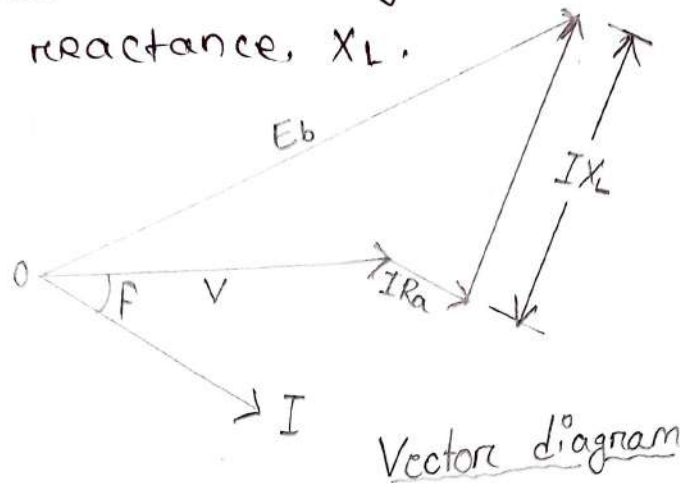 reactance, XL.
Eb
IXL
O
V
F
IRa
I
Vector diagram